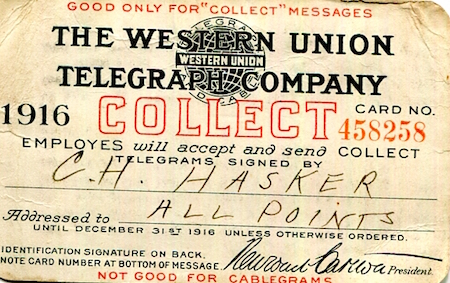 GOOD ONLY FOR "COLLECT" MESSAGES
THE WESTERN UNION
TELEGRAPH COMPANY
WESTERN UNION
1916 COLLECT CARD NO.
458258
EMPLOYES will accept and send COLLECT
TELEGRAMS SIGNED BY
C.H. HASKER
Addressed to ALL POINTS
UNTIL DECEMBER 31ST 1916 UNLESS OTHERWISE ORDERED.
IDENTIFICATION SIGNATURE ON BACK.
NOTE CARD NUMBER AT BOTTOM OF MESSAGE. Newcomb Carlton President.
NOT GOOD FOR CABLEGRAMS